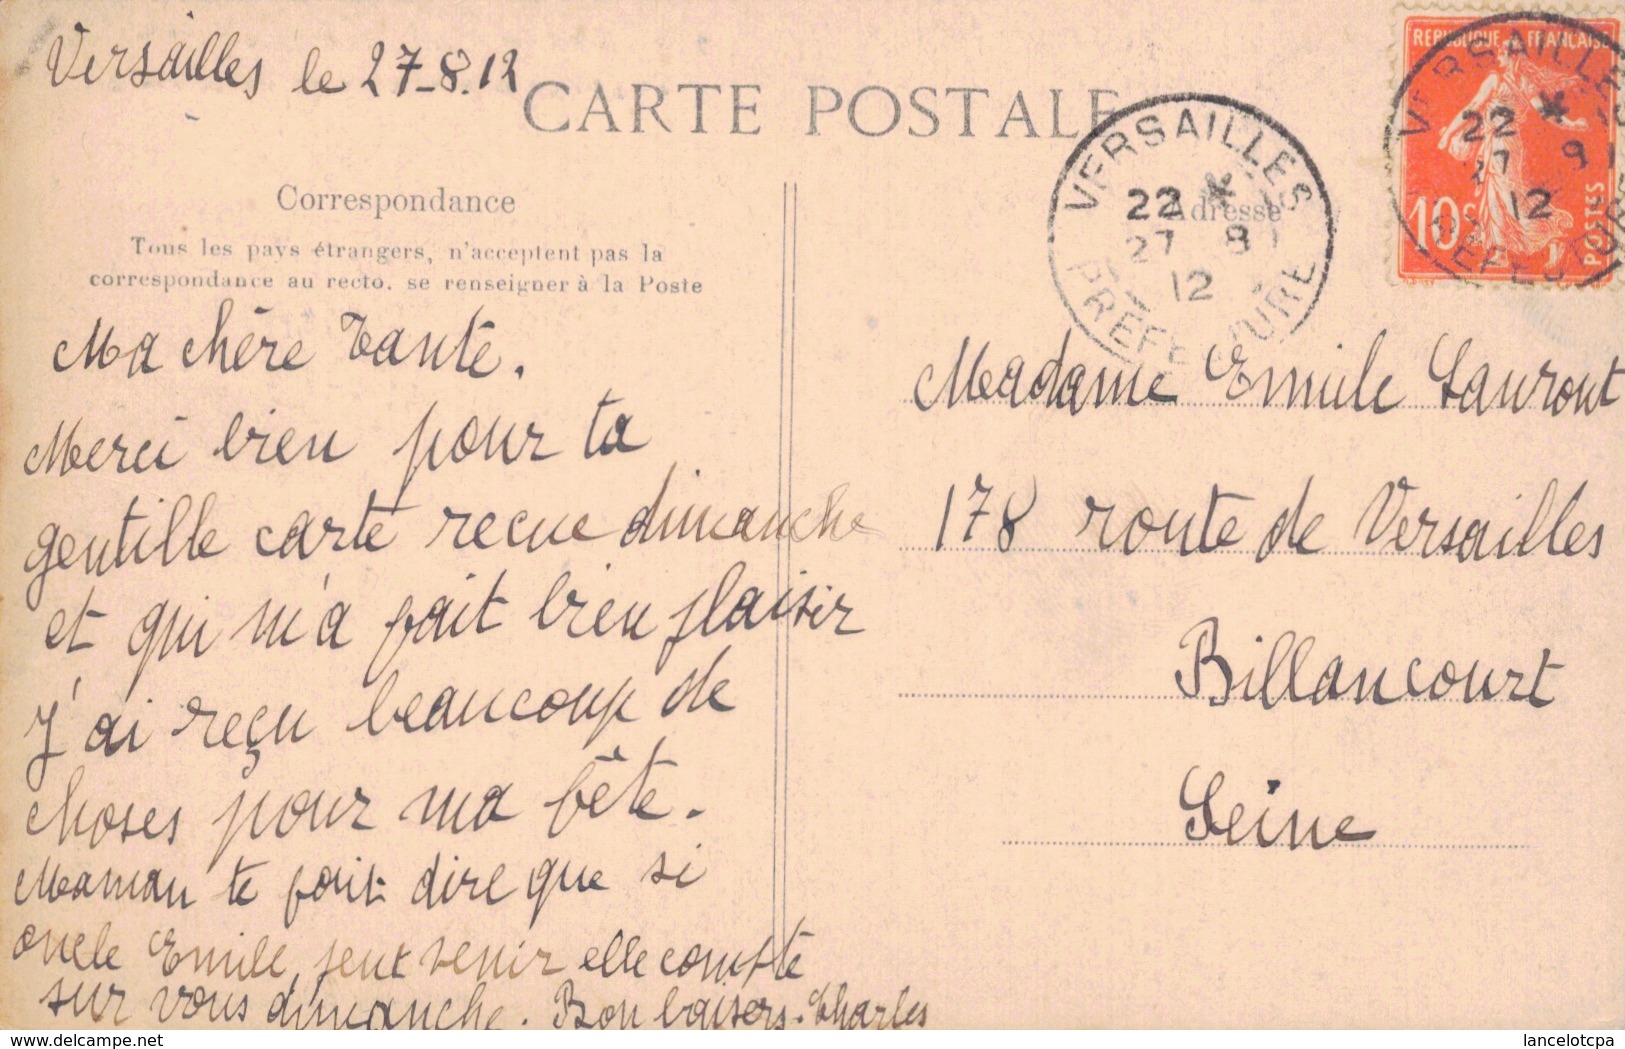 Versailles le 27-8.12
CARTE POSTALE
Correspondance
Tous les pays étrangers, n'acceptent pas la
correspondance au recto. se renseigner à la Poste
Ma chère Tante.
Merci bien pour ta
gentille carte recue dimanche
et qui m'a fait bien plaisir
J'ai reçu beaucoup de
choses pour ma fête.
Maman te fait dire que si
oncle Emile, peut venir elle compte
sur vous dimanche. Bon baisers. Charles
Adresse
VERSAILLES
22 *
27 8
12
PREFECTURE
REPUBLIQUE FRANÇAISE
10c
POSTES
VERSAILLES
22 *
27 8
12
PREFECTURE
Madame Emile Lauront
178 route de Versailles
Billancourt
Seine
delcampe.net
lancelotcpa